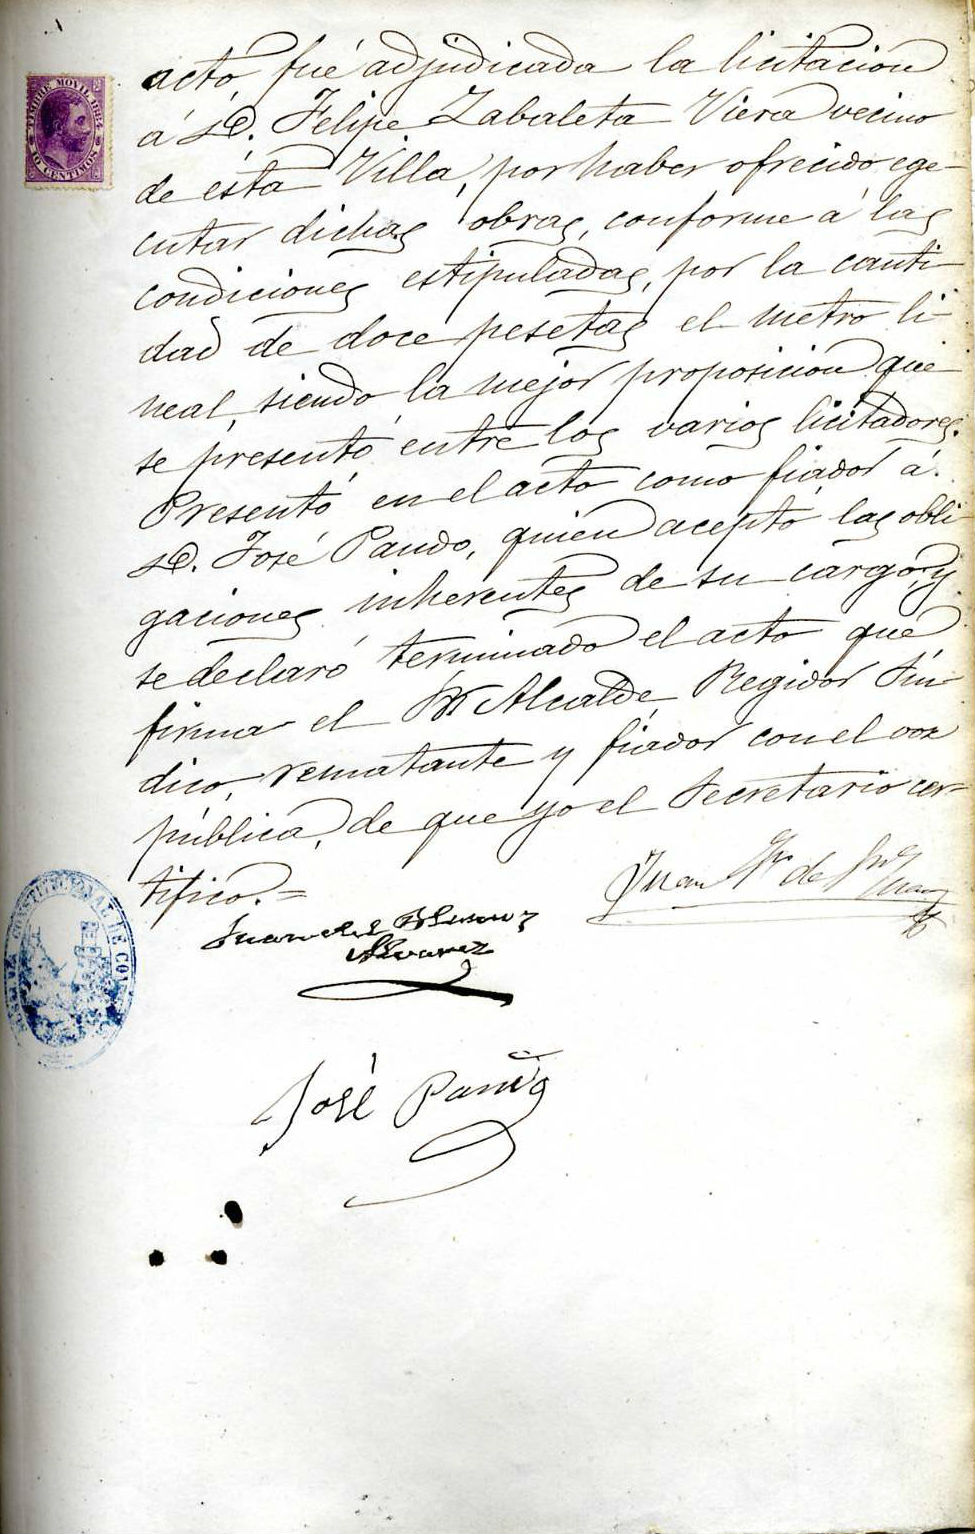 acto, fué adjudicada la licitacion
á D. Felipe Zabaleta Viera vecino
de esta Villa, por haber ofrecido ege-
cutar dichas obras, conforme á las
condiciones estipuladas, por la canti-
dad de doce pesetas el metro li-
neal, siendo la mejor proposicion que
se presentó entre los varios licitadores.
Presentó en el acto como fiador á
D. José Pando, quien aceptó las obli-
gaciones inherentes de su cargo, y
se declaró terminado el acto que
firma el Sr Alcalde, Regidor Sin-
dico, rematante y fiador con el voz
pública, de que yo el Secretario cer-
tifico.=
Juan de
Juan
Alvarez
José Pando
TIMBRE MOVIL 1884
10 CENTIMOS
CONSTITUCIONAL DE